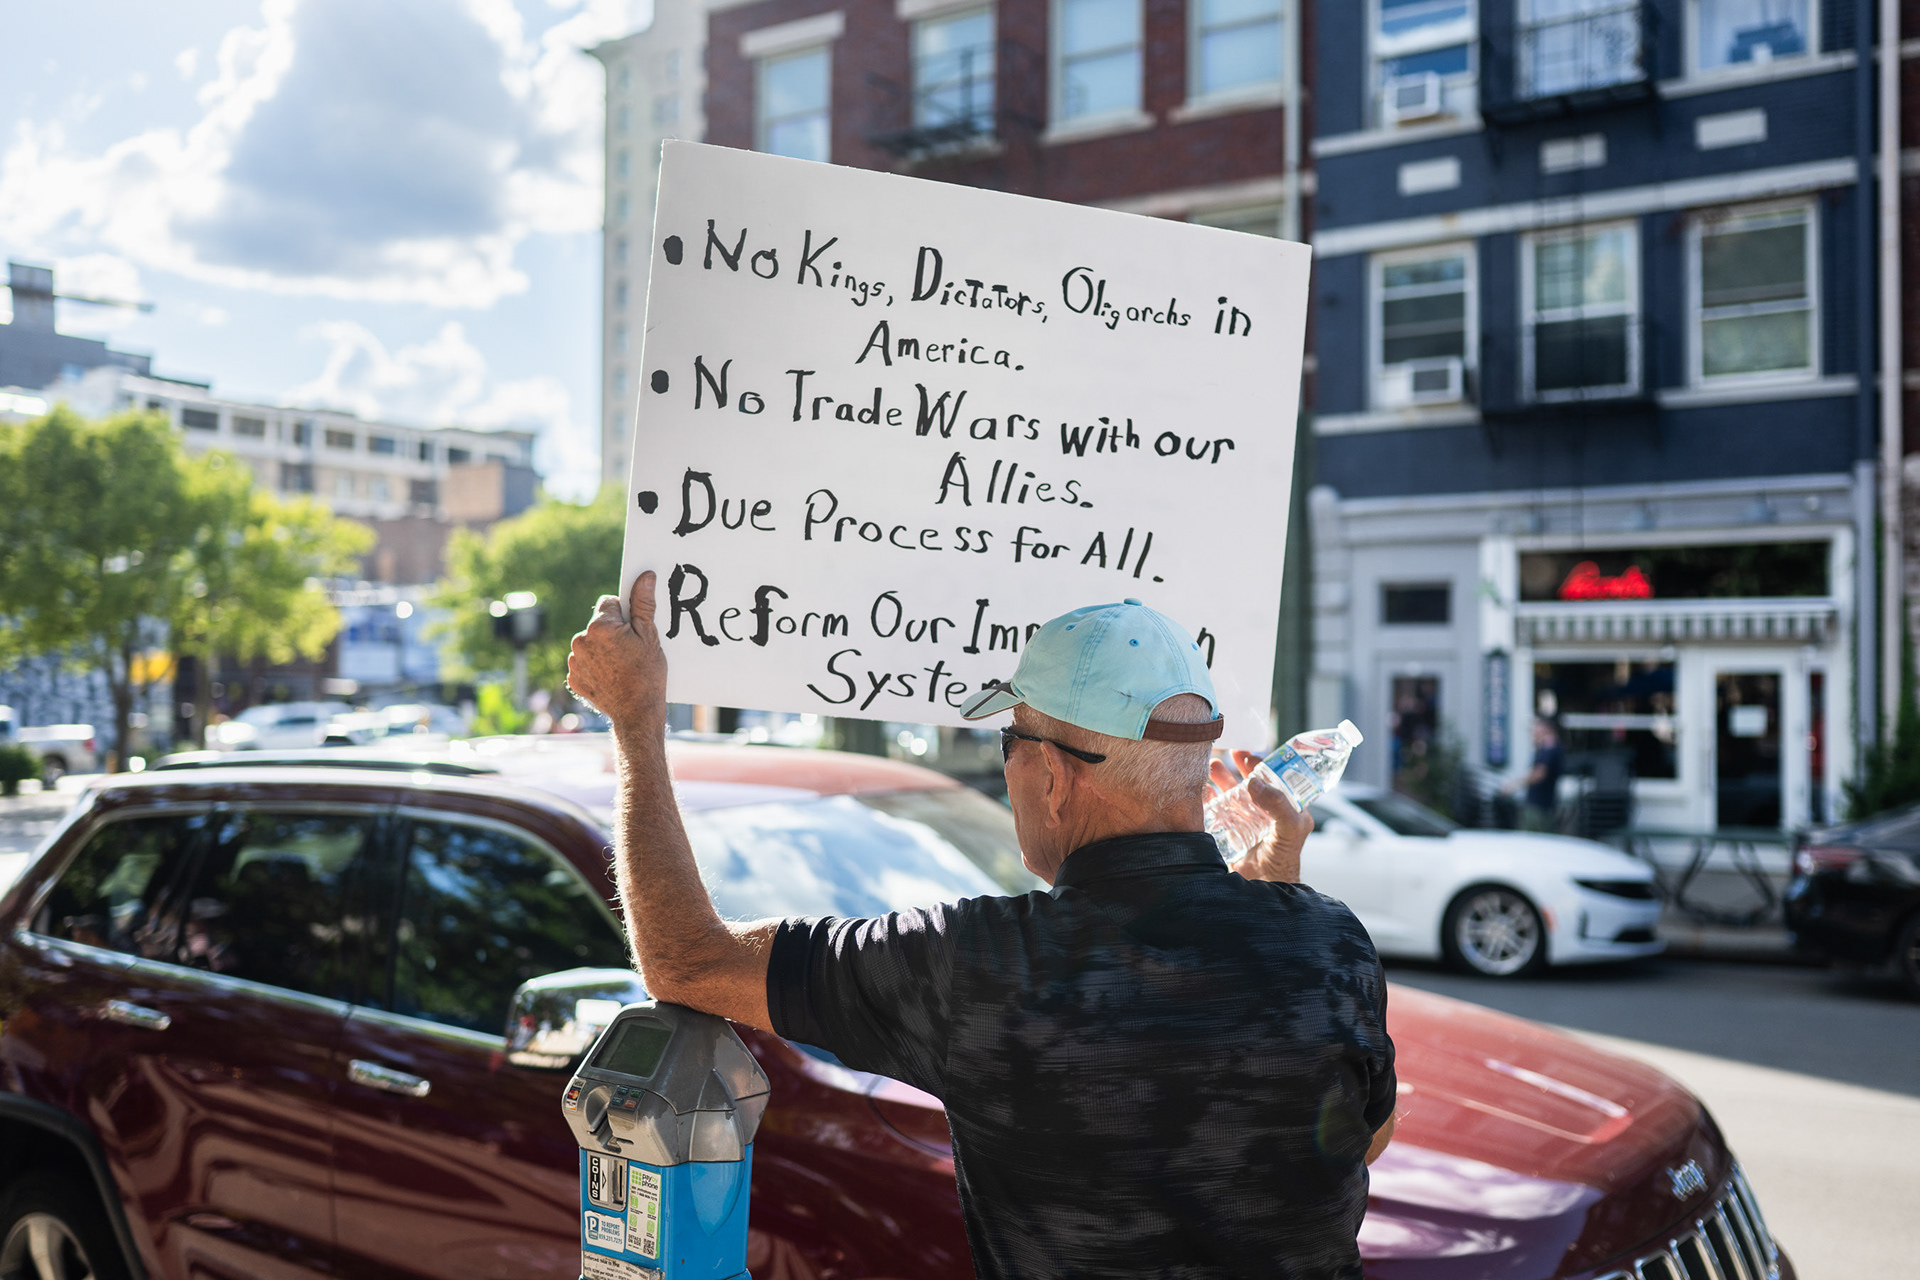 • No Kings, Dictators, Oligarchs in
America.
• No Trade Wars with our
Allies.
• Due Process for All.
Reform Our
COINS
pay by phone
P
TO REPORT
PROBLEMS
Jeep